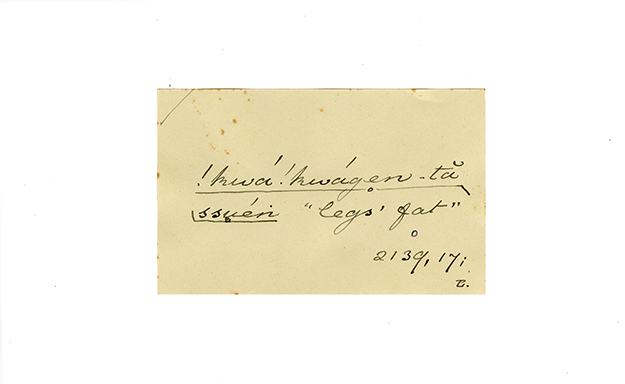 !kwá!kwágen-tă
ssụéń "legs' fat"
2139, 17;